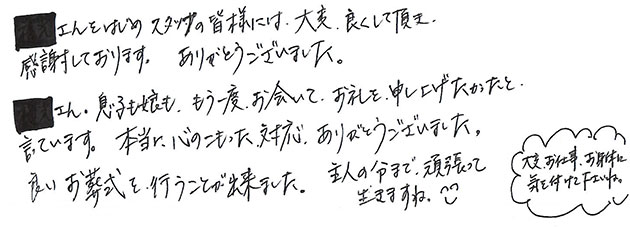 さんをはじめ スタッフの皆様には、大変、良くして頂き、
感謝しております。 ありがとうございました。
さん。息子も娘も、もう一度、お会いして、お礼を、申し上げたかったと、
言っています。 本当に、心のこもった対応、ありがとうございました。
良いお葬式を、行うことが出来ました。 主人の分まで、頑張って
生きますね。
大変なお仕事、お身体に
気を付けて下さいね。